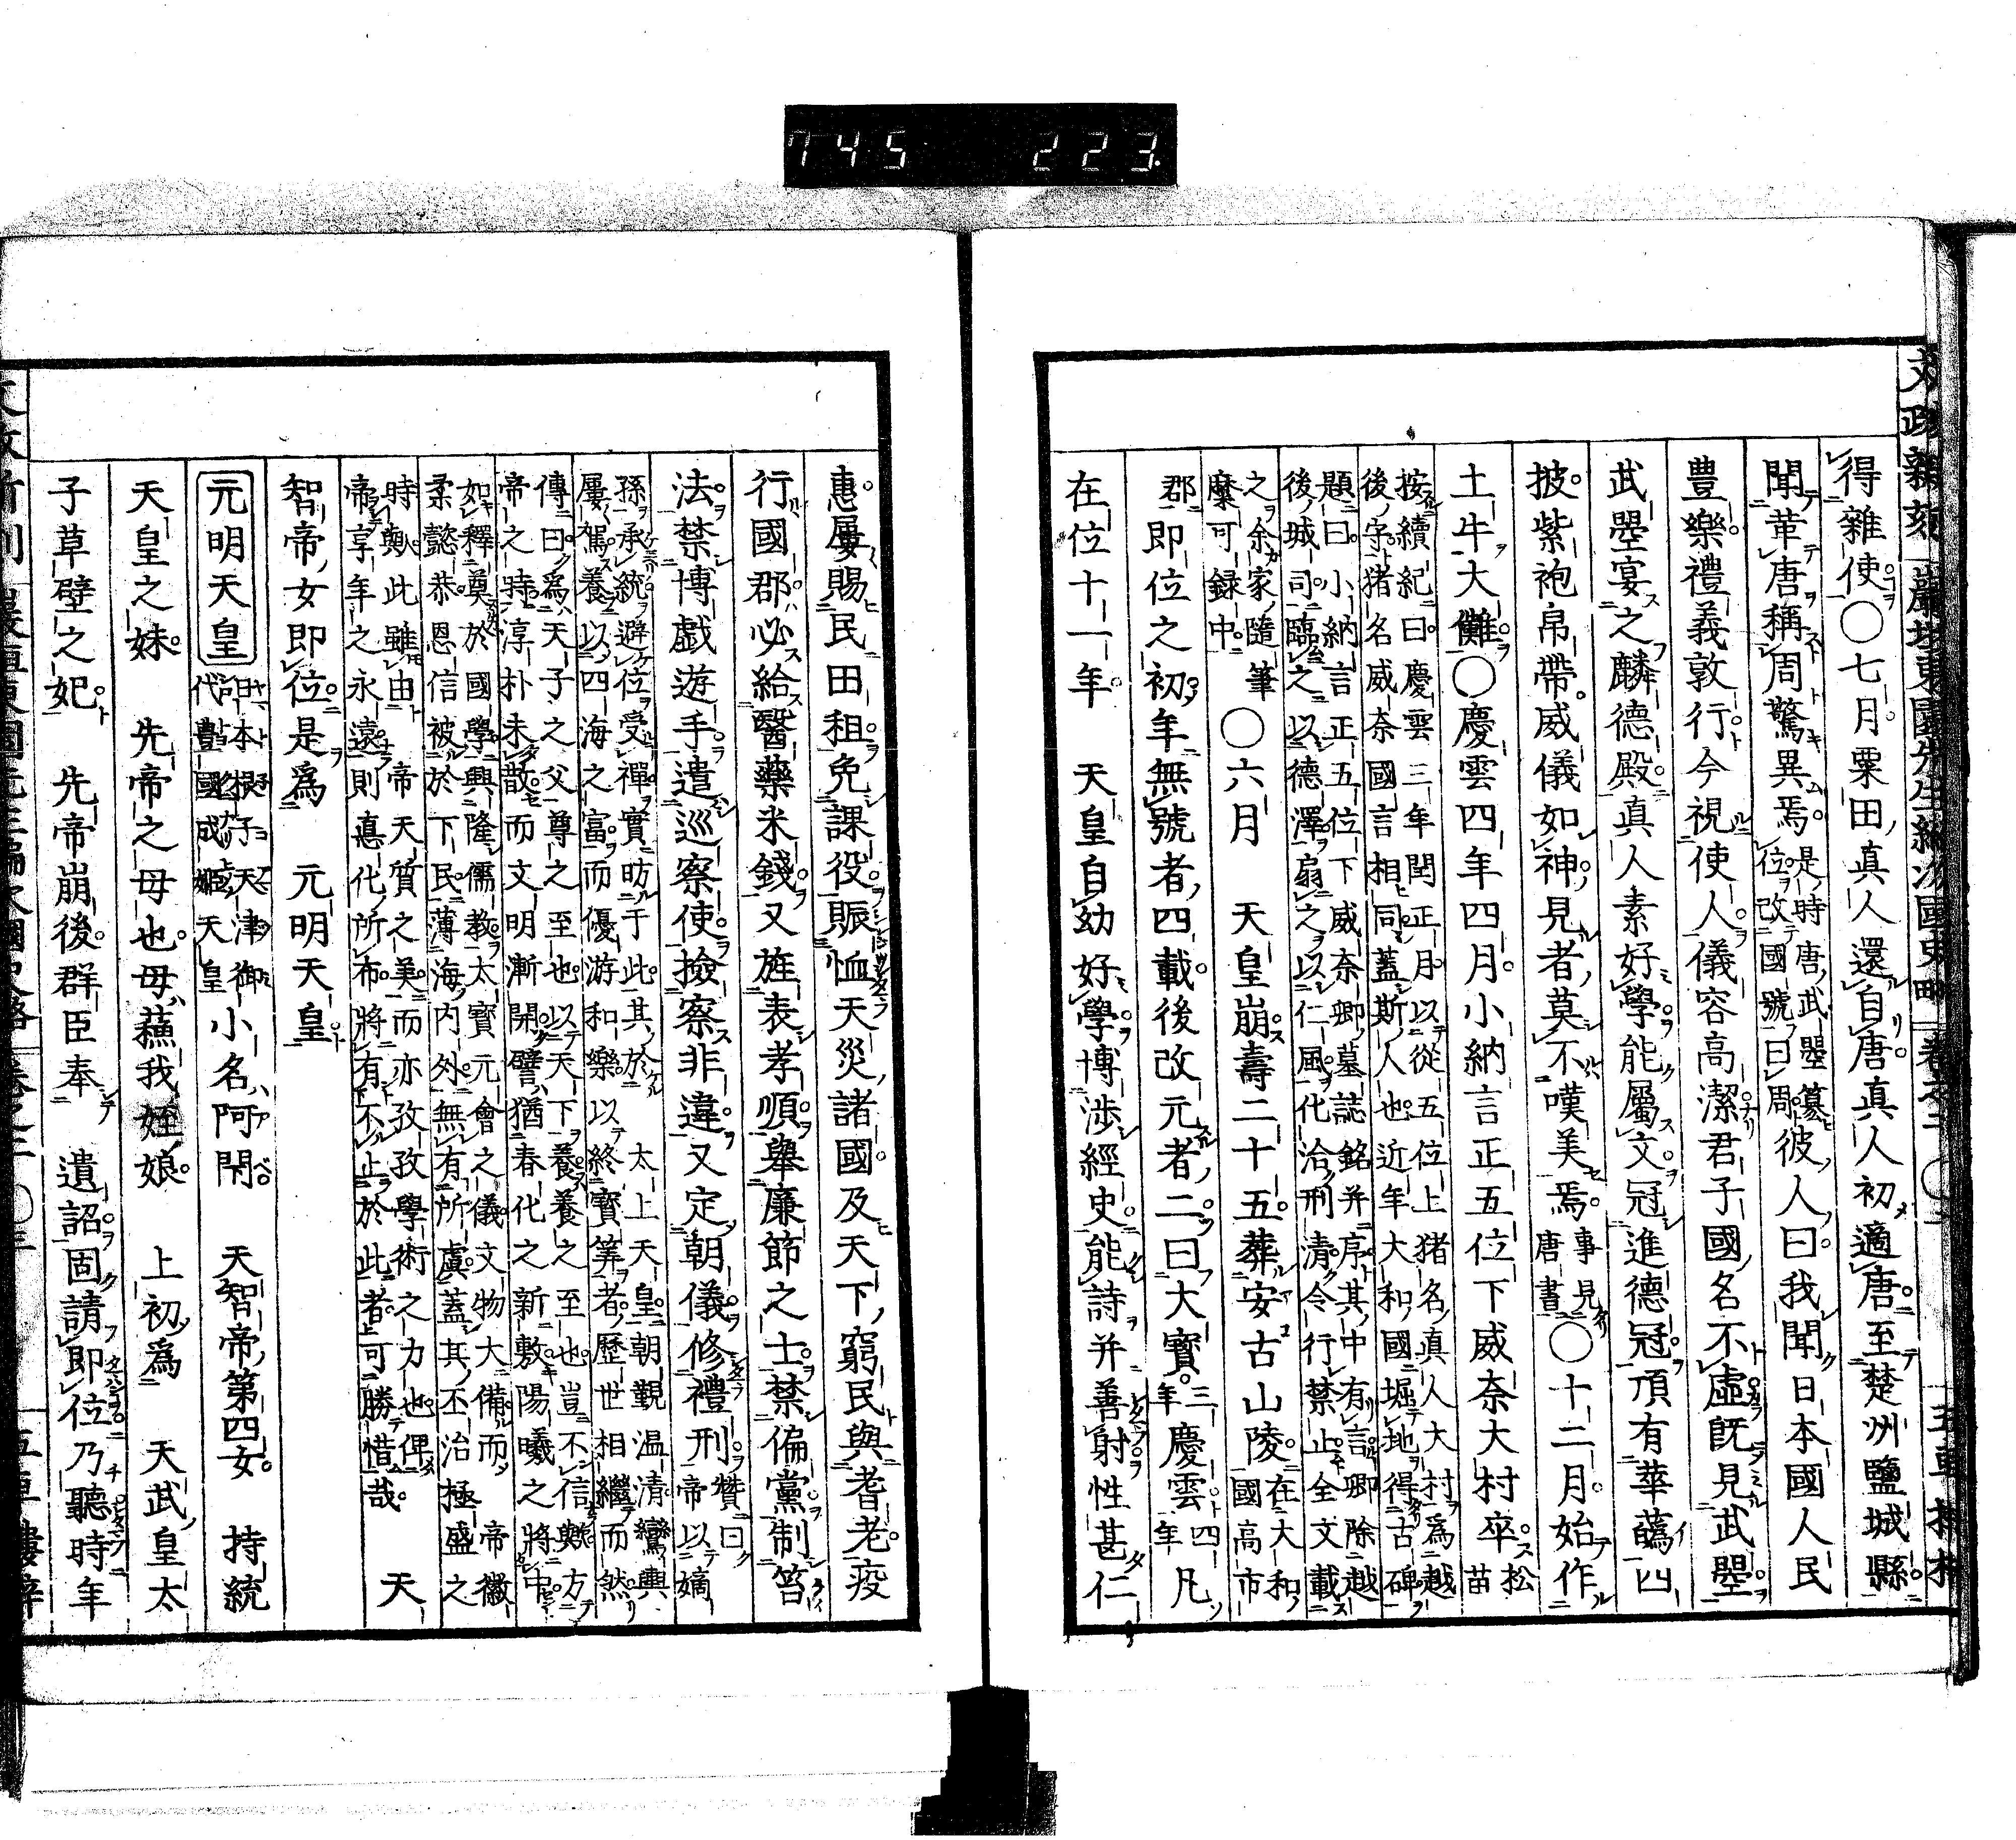 745 223
得雜使〇七月粟田真人還自唐真人初適唐至楚洲鹽城縣
聞革唐稱周驚異焉是時唐武曌簒位改國號曰周彼人曰我聞日本國人民
豊樂禮義敦行今視使人儀容高潔君子國名不虛既見武曌
武曌宴之麟德殿真人素好學能屬文冠進德冠頂有華蘤四
披紫袍帛帶威儀如神見者莫不嘆美焉事見唐書〇十二月始作
土牛大儺〇慶雲四年四月小納言正五位下威奈大村卒松苗
按續紀曰慶雲三年閏正月以從五位上猪名真人大村為越
後守猪名威奈國言相同蓋斯人也近年大和國堀地得古碑
題曰小納言正五位下威奈卿墓誌銘并序其中有言卿除越
後城司臨之以德澤扇之以仁風化洽刑清令行禁止全文載
之余家隨筆
麋可録中〇六月 天皇崩壽二十五葬安古山陵在大和國高市
郡即位之初年無號者四載後改元者二曰大寶三年慶雲四年凡
在位十一年 天皇自幼好學博渉經史能詩并善射性甚仁
惠屢賜民田租免課役賑恤天災諸國及天下窮民與耆老疫
行國郡必給醫藥米錢又旌表孝順舉廉節之士禁偏黨制笞
法禁博戯遊手遣巡察使撿察非違又定朝儀修禮刑贊曰帝以嫡
孫承統避位受禪實昉于此其於 太上天皇朝覲温清鸞輿
屢駕養以四海之富而優游和樂以終寶筭者歷世相繼而然
傳曰為天子之父尊之至也以天下養養之至也豈不信歟方
帝之時淳朴未散而文明漸開譬猶春化之新敷陽曦之將中
如釋奠於國學興隆儒教太寶元會之儀文物大備而 帝徽
柔懿恭恩信被於下民薄海內外無有所虞蓋其丕治極盛之
時歟此雖由 帝天質之美而亦孜孜學術之力也俾
帝享年之永遠則真化所布將有不止於此者可勝惜哉 天
智帝女即位是爲 元明天皇
元明天皇日本根子天津御代豊國成姬天皇小名阿閇 天智帝第四女 持統
天皇之妹 先帝之母也母蘓我姪娘 上初爲 天武皇太
子草壁之妃 先帝崩後群臣奉 遺詔固請即位乃聽時年